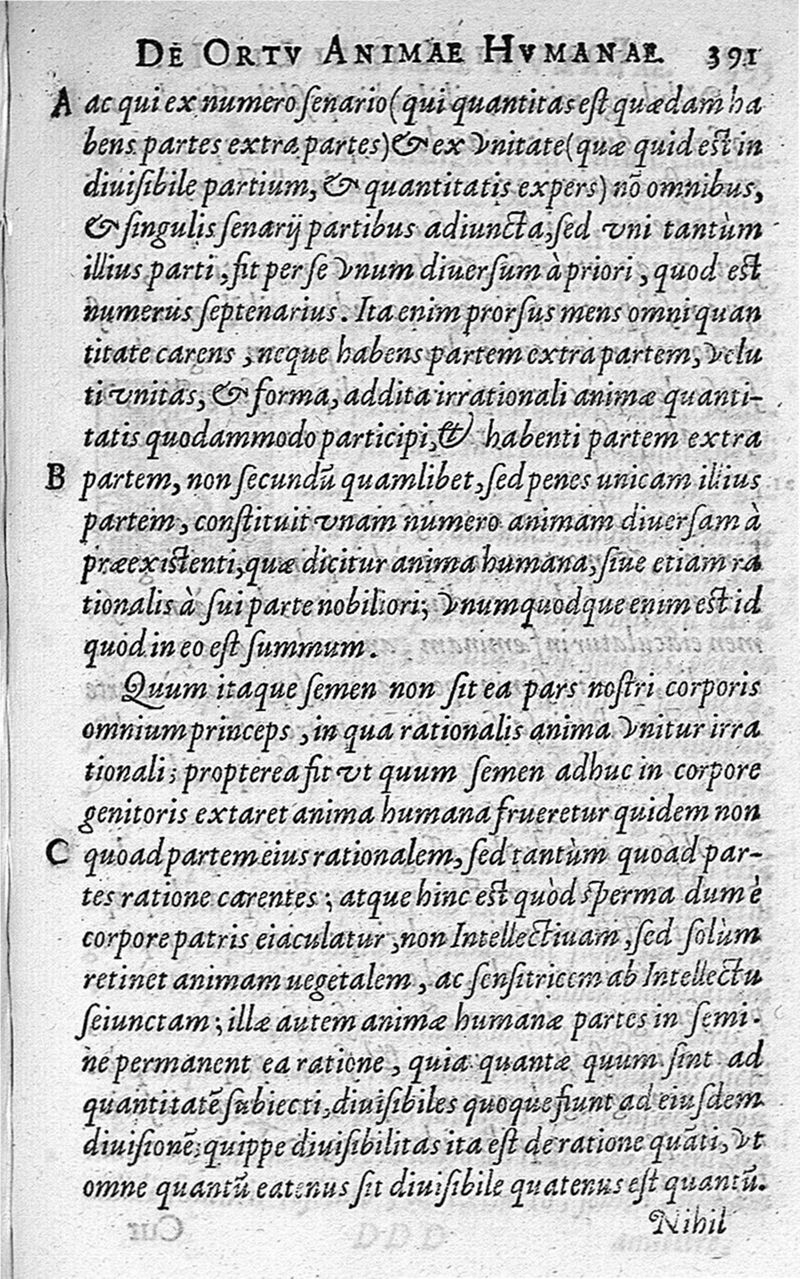 DE ORTV ANIMAE HVMANAE. 391
A ac qui ex numero ſenario (qui quantitas eſt quædam ha
bens partes extra partes) & ex vnitate (quæ quid eſt in
diuiſibile partium, & quantitatis expers) nō omnibus,
& ſingulis ſenarij partibus adiuncta, ſed vni tantùm
illius parti, fit per ſe vnum diuerſum à priori, quod eſt
numerus ſeptenarius. Ita enim prorſus mens omni quan
titate carens, neque habens partem extra partem, velu
ti vnitas, & forma, addita irrationali animæ quanti-
tatis quodammodo participi, & habenti partem extra
B partem, non ſecundū quamlibet, ſed penes unicam illius
partem, conſtituit vnam numero animam diuerſam à
præexiſtenti, quæ dicitur anima humana, ſiue etiam ra
tionalis à ſui parte nobiliori; vnumquodque enim eſt id
quod in eo eſt ſummum.
Quum itaque ſemen non ſit ea pars noſtri corporis
omnium princeps, in qua rationalis anima vnitur irra
tionali; propterea fit vt quum ſemen adhuc in corpore
genitoris extaret anima humana frueretur quidem non
C quoad partem eius rationalem, ſed tantùm quoad par-
tes ratione carentes; atque hinc eſt quòd ſperma dum è
corpore patris eiaculatur, non Intellectiuam, ſed ſolùm
retinet animam uegetalem, ac ſenſitricem ab Intellectu
ſeiunctam; illæ autem animæ humanæ partes in ſemi-
ne permanent ea ratione, quia quantæ quum ſint ad
quantitatē ſubiecti, diuiſibiles quoque fiunt ad eiuſdem
diuiſionē; quippe diuiſibilitas ita eſt de ratione quāti, vt
omne quantū eatenus ſit diuiſibile quatenus eſt quantū.
Nihil